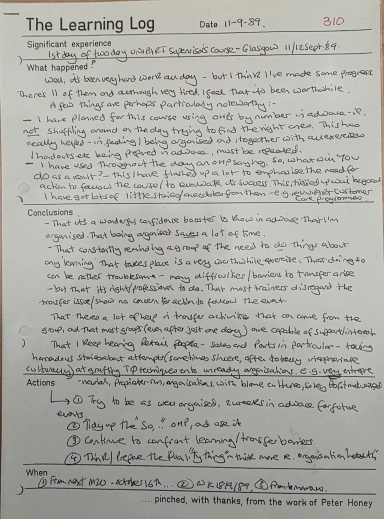 The Learning Log Date 11-9-89. 310
Significant experience
1st day of two day UNIPART Supervisors course - Glasgow 11/12 Sept 89.
What happened?
Well, it's been very hard work all day - but I think I've made some progress
There's 11 of them and although very tired, I feel that it's been worthwhile.
A few things are perhaps particularly noteworthy:-
- I have planned for this course using OHPs by number in advance - i.e.
not shuffling around on the day trying to find the right ones. This has
really helped - in feeling/being organised and, together with all exercises
/handouts etc being prepared in advance, must be repeated.
- I have used throughout the day an OHP saying, So, what will you
do as a result? - this I have flashed up a lot to emphasise the need for
action to follow the course/to evaluate its success. This, tidied up would be good
I have got lots of little stories/anecdotes from them - e.g. customer
care programmes
Conclusions
- That it's a wonderful confidence booster to know in advance that I'm
organised. That being organised saves a lot of time.
- That constantly reminding a group of the need to do things about
any learning that takes place is a very worthwhile exercise. That doing so
can be rather troublesome - many difficulties/barriers to transfer arise
- but that it's right/professional to do. That most trainers disregard the
transfer issue/show no concern for action to follow the event.
That there's a lot of help in transfer activities that can come from the
group, and that most groups (even after just one day) are capable of support/interest
That I keep hearing retail people - sales and parts in particular - talking
horrendous stories about attempts (sometimes sincere, often totally inappropriate
culturally) at grafting TQ techniques onto unready organisations. e.g. very
organisations with blame cultures,
Actions
① Try to be as well organised, 2 weeks in advance for future
events
② Tidy up the "So," OHP, and use it
③ Continue to confront learning/transfer barriers.
④ Think/prepare the Quality "thing" in think more re. organisation
When
① From next M20 - October 16th... ② WK 18/9/89 ③ From tomorrow.
....pinched, with thanks, from the work of Peter Honey